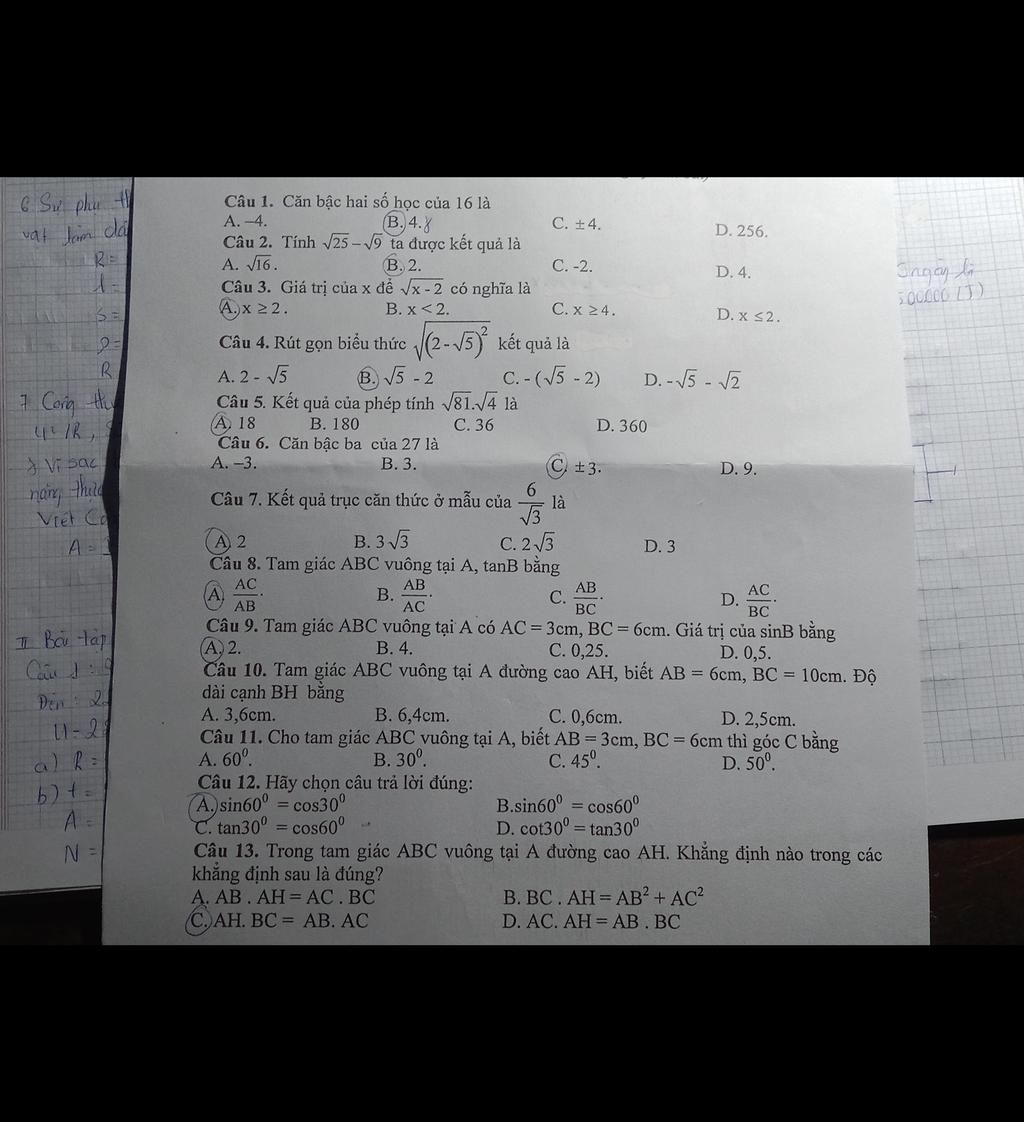 Câu 1. Căn bậc hai số học của 16 là
A. –4. B. 4. C. ±4. D. 256.
Câu 2. Tính √25 – √9 ta được kết quả là
A. √16. B. 2. C. -2. D. 4.
Câu 3. Giá trị của x để √x - 2 có nghĩa là
A. x ≥ 2. B. x < 2. C. x ≥ 4. D. x ≤ 2.
Câu 4. Rút gọn biểu thức √(2 - √5)² kết quả là
A. 2 - √5 B. √5 - 2 C. - (√5 - 2) D. -√5 - √2
Câu 5. Kết quả của phép tính √81.√4 là
A. 18 B. 180 C. 36 D. 360
Câu 6. Căn bậc ba của 27 là
A. –3. B. 3. C. ±3. D. 9.
Câu 7. Kết quả trục căn thức ở mẫu của 6/√3 là
A. 2 B. 3√3 C. 2√3 D. 3
Câu 8. Tam giác ABC vuông tại A, tanB bằng
A. AC/AB. B. AB/AC. C. AB/BC. D. AC/BC.
Câu 9. Tam giác ABC vuông tại A có AC = 3cm, BC = 6cm. Giá trị của sinB bằng
A. 2. B. 4. C. 0,25. D. 0,5.
Câu 10. Tam giác ABC vuông tại A đường cao AH, biết AB = 6cm, BC = 10cm. Độ
dài cạnh BH bằng
A. 3,6cm. B. 6,4cm. C. 0,6cm. D. 2,5cm.
Câu 11. Cho tam giác ABC vuông tại A, biết AB = 3cm, BC = 6cm thì góc C bằng
A. 60⁰. B. 30⁰. C. 45⁰. D. 50⁰.
Câu 12. Hãy chọn câu trả lời đúng:
A. sin60⁰ = cos30⁰ B.sin60⁰ = cos60⁰
C. tan30⁰ = cos60⁰ D. cot30⁰ = tan30⁰
Câu 13. Trong tam giác ABC vuông tại A đường cao AH. Khẳng định nào trong các
khẳng định sau là đúng?
A. AB . AH = AC . BC B. BC . AH = AB² + AC²
C. AH. BC = AB. AC D. AC. AH = AB . BC
6 Sự phụ
vật làm
R =
l =
S =
R
7 Công
Vì sao
năng
Viết
A =
II Bài tập
Câu 1 :
Đèn :
U =
a) R =
b) t =
A =
N =